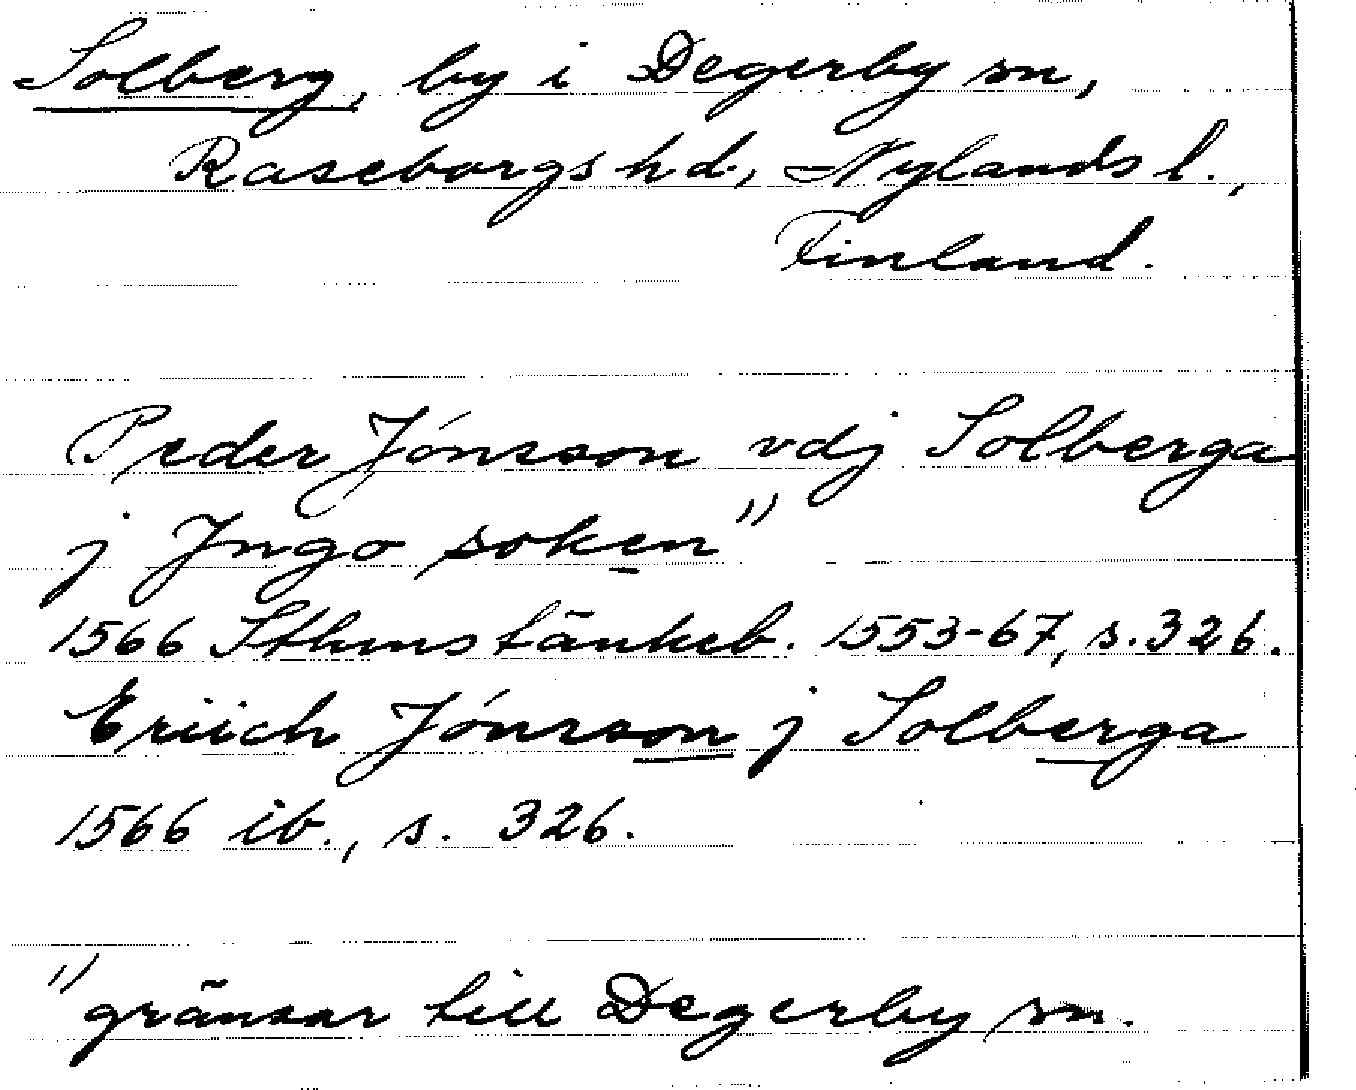 Solberg, by i Degerby sn,
Raseborgs hd., Nylands l.,
Finland.
Peder Jónsson vdj Solberga
j Jngo soken 1)
1566 Sthms tänkeb. 1553-67, s. 326.
Eriich Jónsson j Solberga
1566 ib., s. 326.
1) gränsar till Degerby sn.